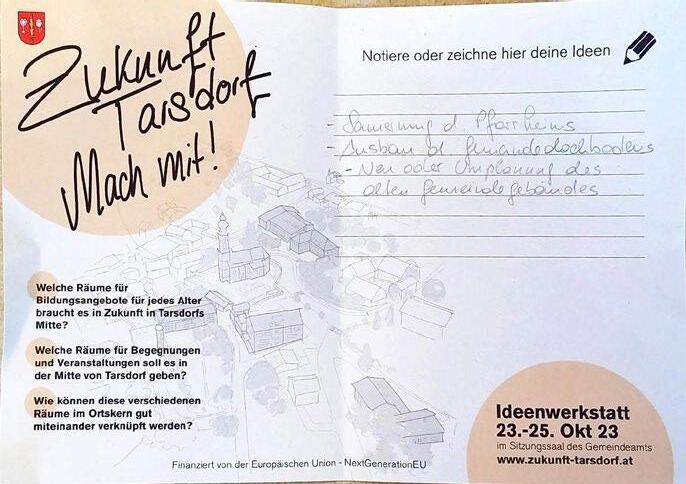 Zukunft
Tarsdorf
Mach mit!
Notiere oder zeichne hier deine Ideen
- Sanierung d Pfarrheims
- Ausbau d Gemeindedachbodens
- Neu oder Umplanung des
alten Gemeindegebäudes
Welche Räume für
Bildungsangebote für jedes Alter
braucht es in Zukunft in Tarsdorfs
Mitte?
Welche Räume für Begegnungen
und Veranstaltungen soll es in
der Mitte von Tarsdorf geben?
Wie können diese verschiedenen
Räume im Ortskern gut
miteinander verknüpft werden?
Ideenwerkstatt
23.-25. Okt 23
im Sitzungssaal des Gemeindeamts
www.zukunft-tarsdorf.at
Finanziert von der Europäischen Union - NextGenerationEU